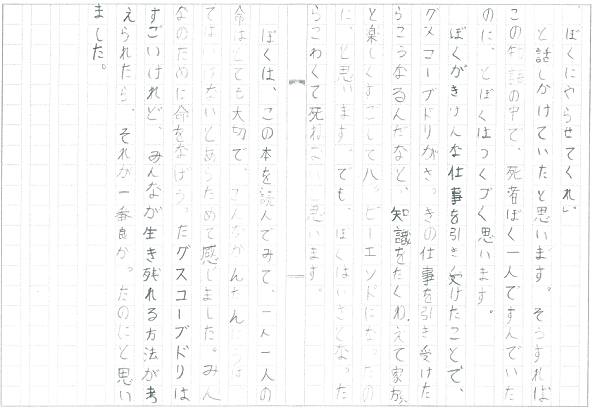 ぼくにやらせてくれ」
と話しかけていたと思います。そうすれば
この物語の中で、死者はぼく一人ですんでいた
のに、とぼくはつくづく思います。
ぼくがきけんな仕事を引き受けたことで、
グスコーブドリがさっきの仕事を引き受けた
らこうなるんだなと、知識をたくわえて家族
と楽しくすごしてハッピーエンドになったの
に、と思います。でも、ぼくはいざとなった
らこわくて死ねないと思います。
ぼくは、この本を読んでみて、一人一人の
命はとても大切で、こんなかんたん
てはいけないとあらためて感じました。みん
なのために命をなげうったグスコーブドリは
すごいけれど、みんなが生き残れる方法が考
えられたら、それが一番良かったのにと思い
ました。